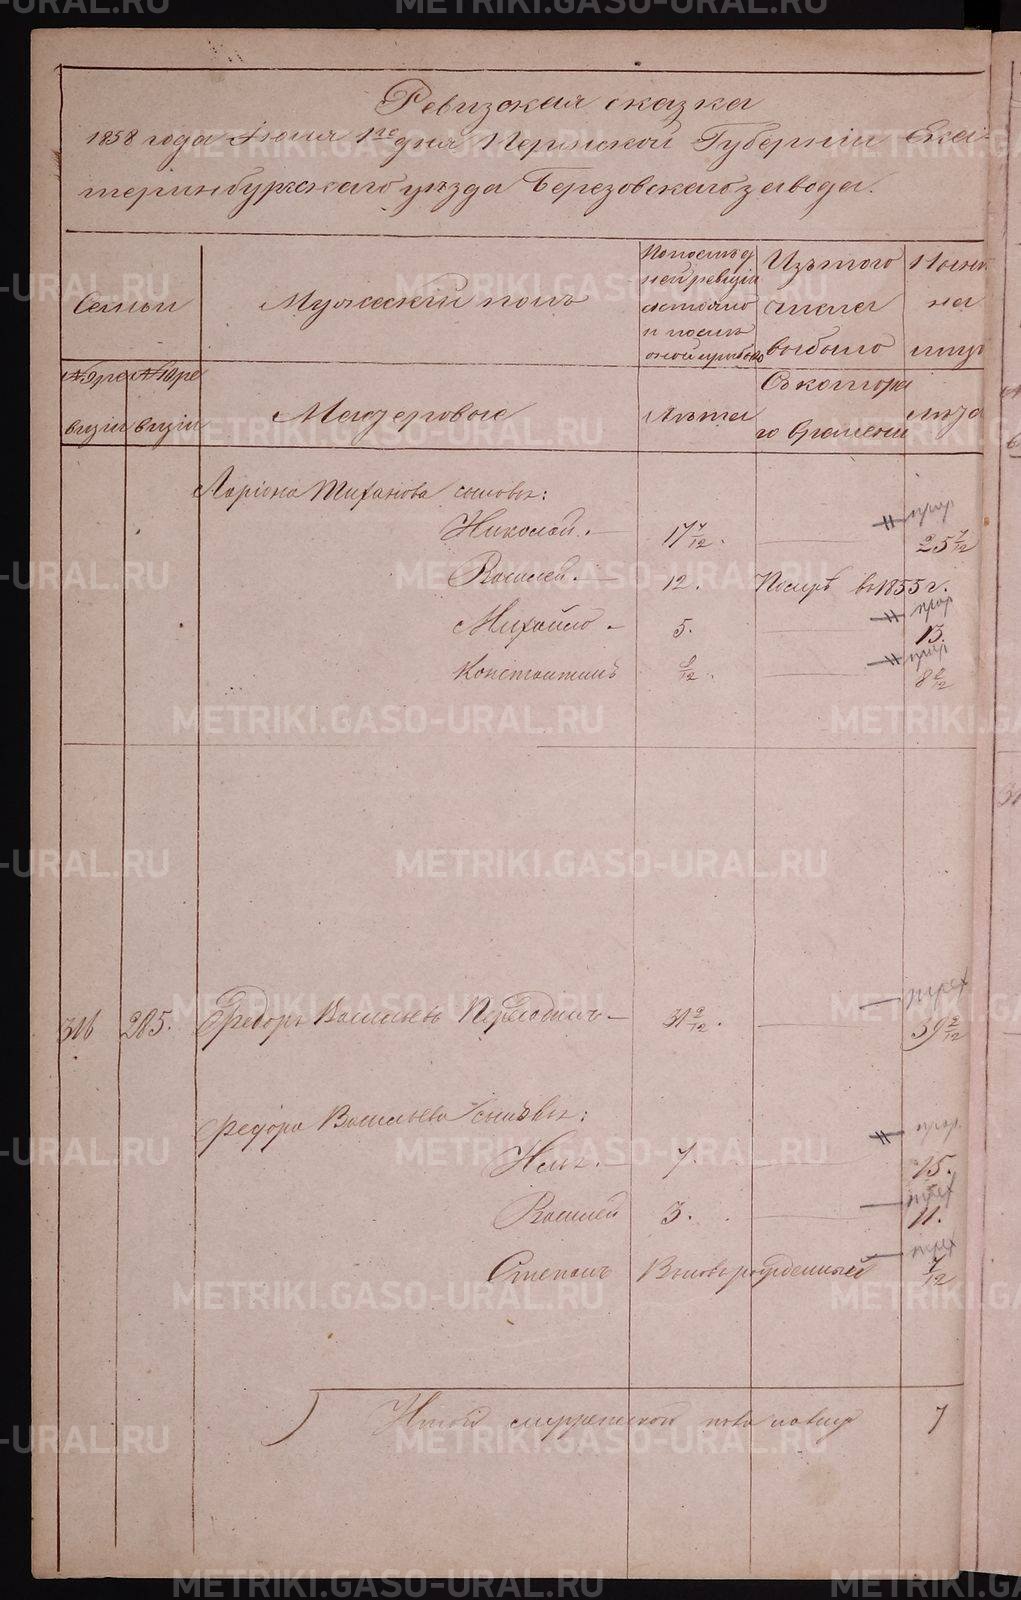 Ревизская сказка
1858 года Июня 1го дня Пермской Губерніи Ека-
теринбургскаго уезда Березовскаго завода.
Семьи
Мужескій полъ
По послѣд
ней ревизіи
состояло
и послѣ
оной прибыло
Изъ того
числа
выбыло
Ныне
на
лицо
№ 9 ре
визіи
№ 10 ре
визіи
Мастеровые
Лѣта
Съ котора
го времени
лѣта
Ларіона сыновья:
Николай. 17 7/12. 25 7/12
Василей. 12. Померъ въ 1855 г.
Михайло 5. 13.
Константинъ 8 2/12
205. Федоръ Васильевъ 31 2/12. 39 2/12
Федора Васильева сыновья:
7. 15.
Василей 3. 11.
Степанъ Вновь рожденный 7/12
Итого мужескаго пола на лицо 7
METRIKI.GASO-URAL.RU